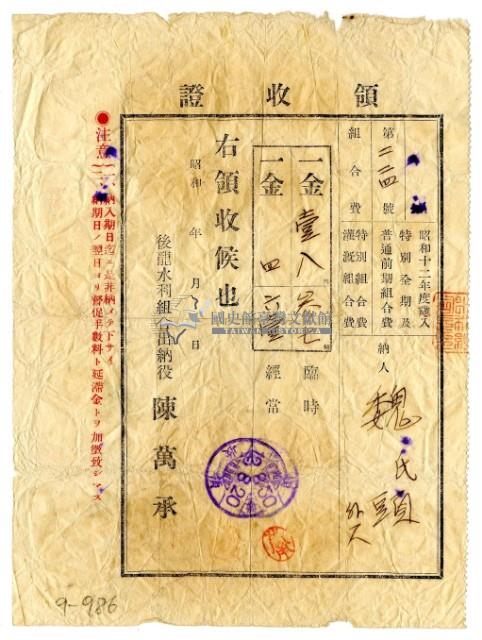 領收證
昭和十二年度歲入
特別全期及
普通前期組合費
特別組合費
灌漑組合費
第二二四號
組合費
納人
魏氏頭
外人
一金 壹八 臨時
一金 四 經常
右領收候也
昭和 年 月 日
後龍水利組合出納役 陳萬承
●注意
一、納入期日迄ニ是非納メテ下サイ
二、納期日ノ翌日ヨリ督促手數料ト延滯金トヲ加徵致シマス
國史館臺灣文獻館
TAIWAN HISTORICA
9-986